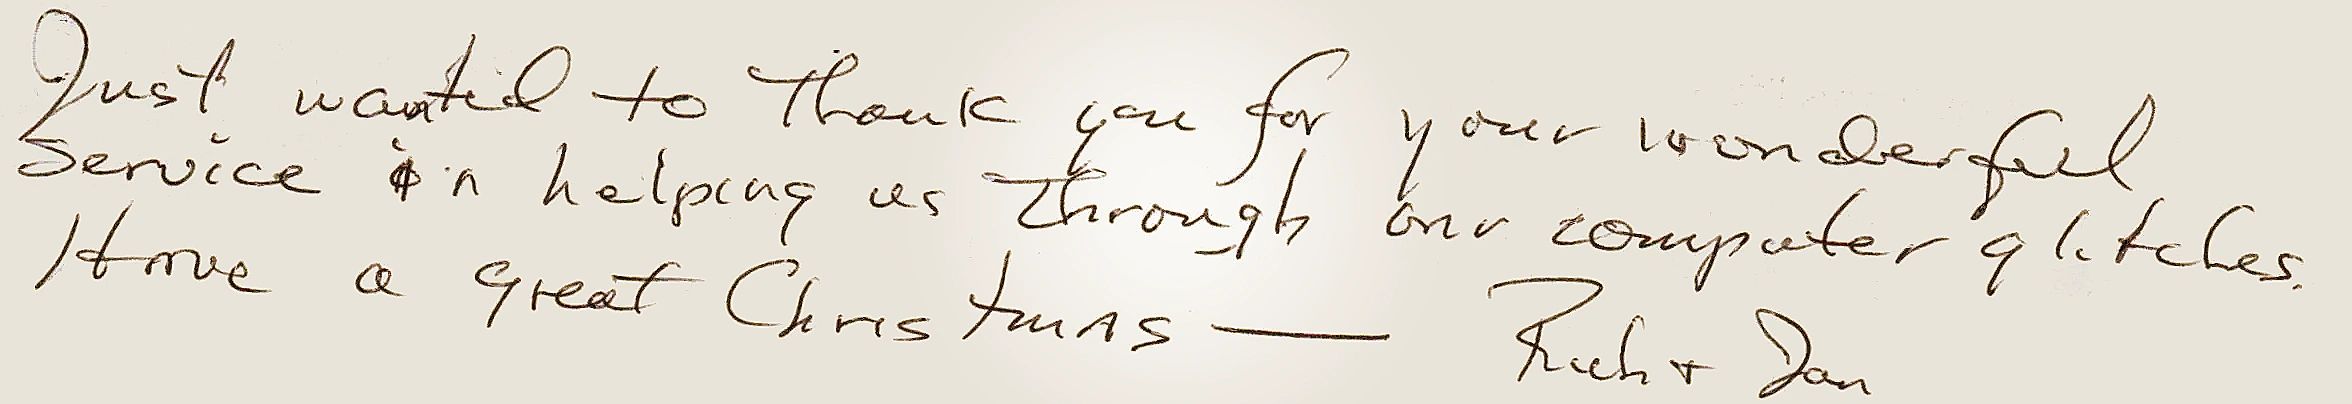 Just wanted to Thank you for your wonderful
Service in helping us Through our computer glitches.
Have a great Christmas — Rich + Jan